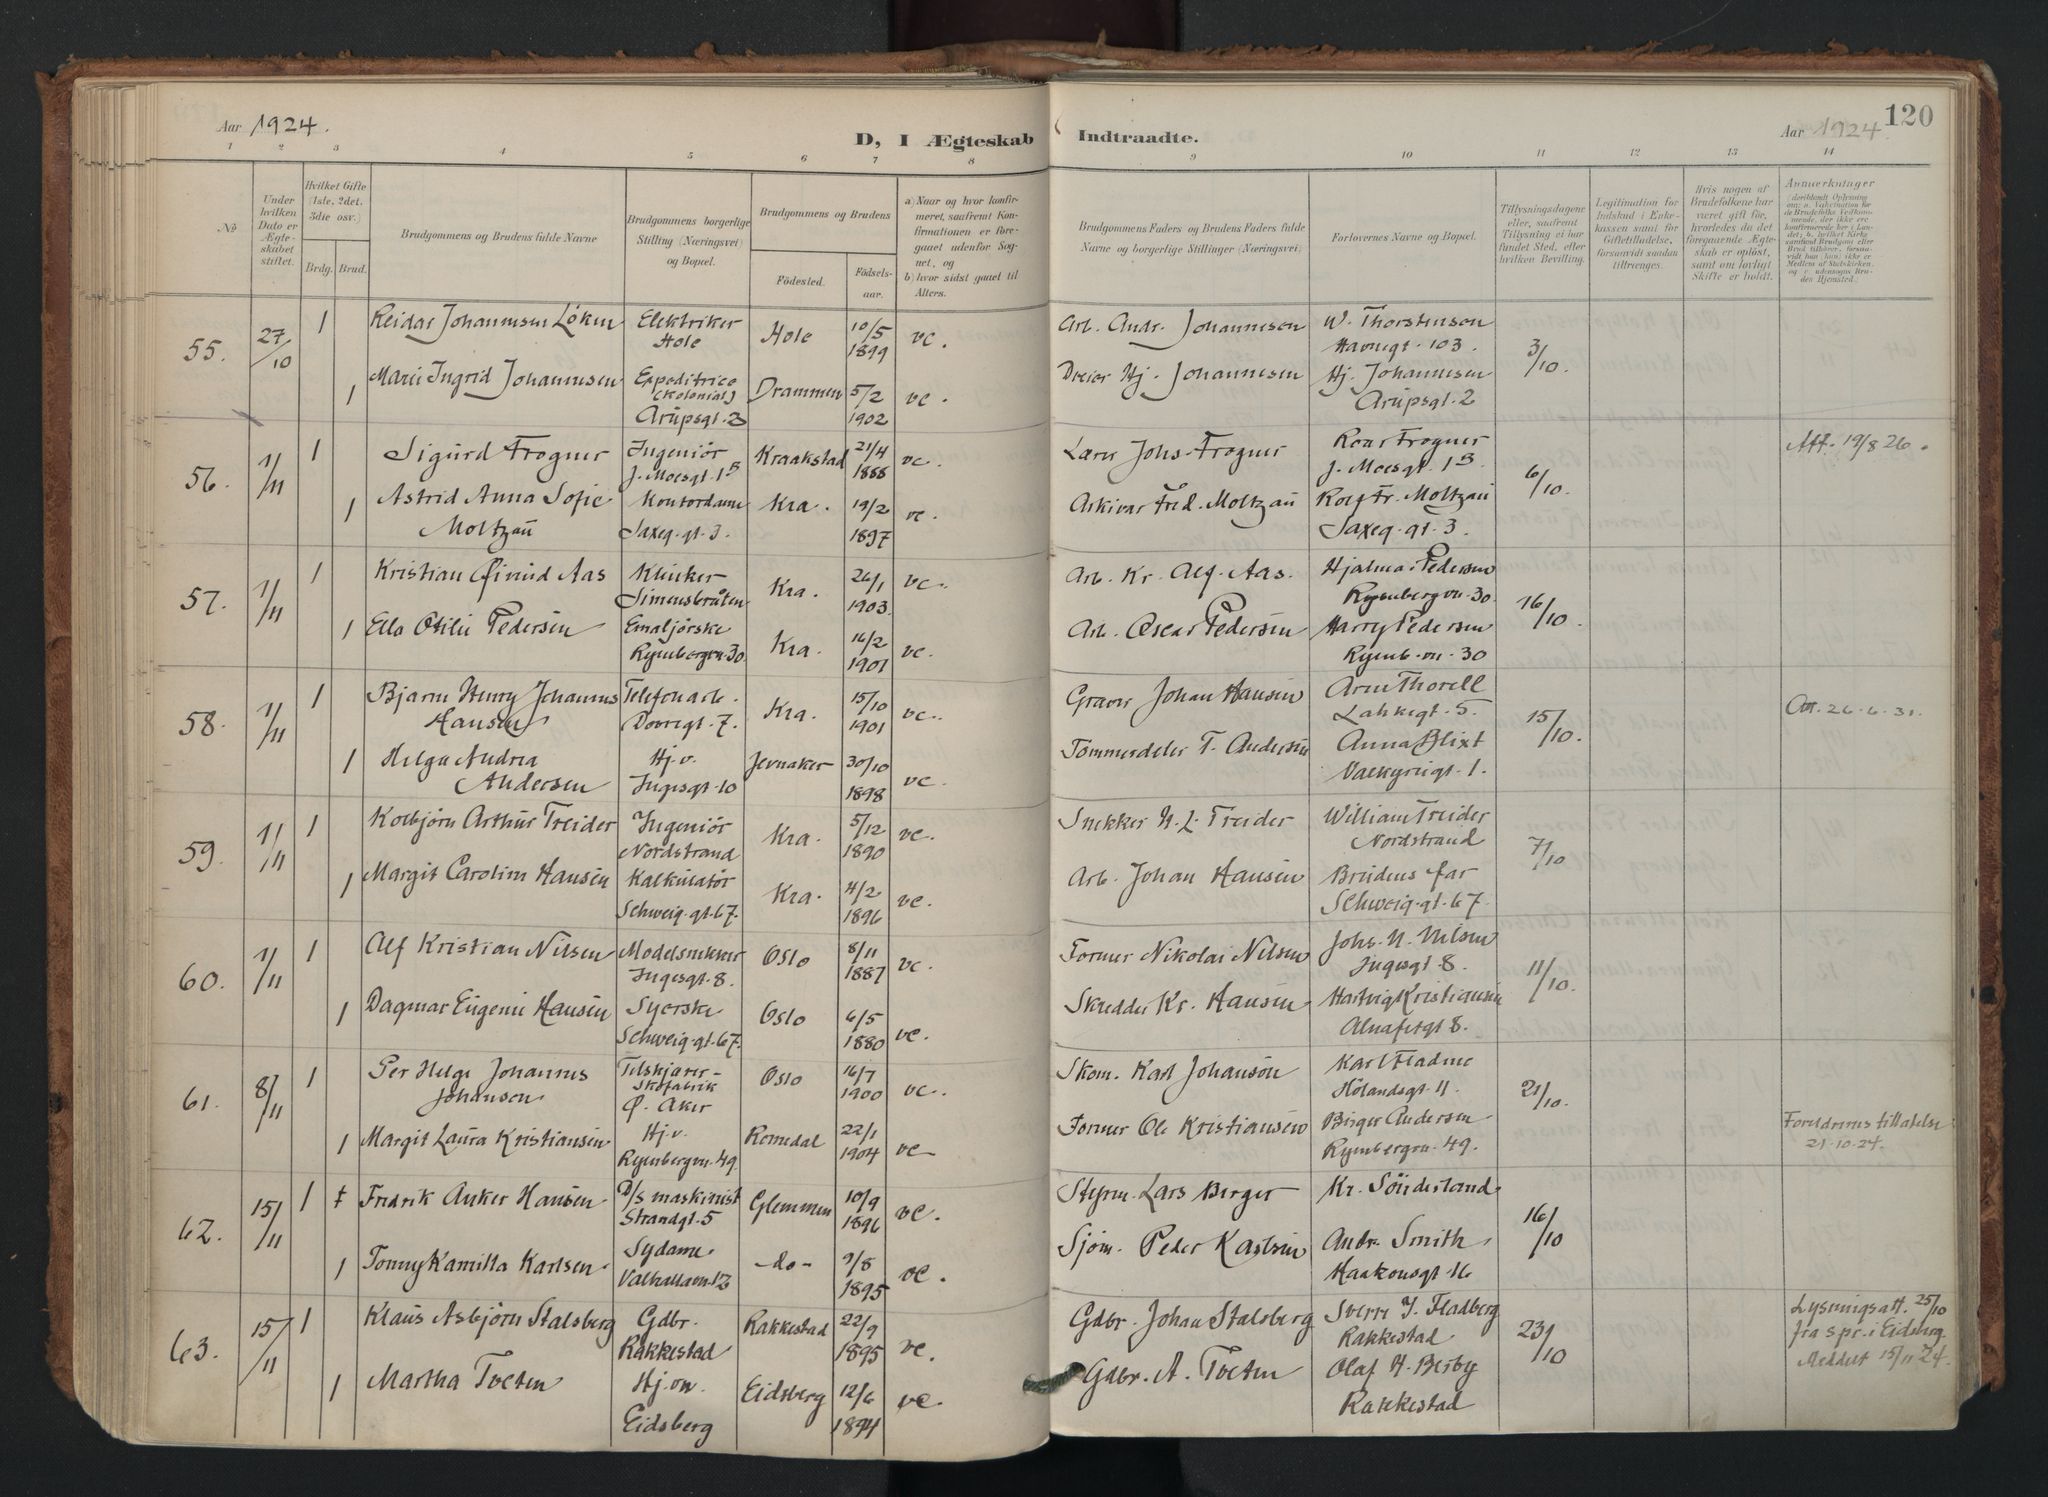 120
Aar 1924.
D, I Ægteskab Indtraadte.
Aar 1924
1 2 3 4 5 6 7 8 9 10 11 12 13 14
No
Under hvilken Dato er Ægteskabet stiftet.
Hvilket Gifte (1ste, 2det. 3die osv.)
Brdg. Brud.
Brudgommens og Brudens fulde Navne
Brudgommens borgerlige Stilling (Næringsvei) og Bopæl.
Brudgommens og Brudens
Födested. Födselsaar.
a) Naar og hvor konfirmeret, saafremt Konfirmationen er foregaaet udenfor Sognet, og
b) hvor sidst gaaet til Alters.
Brudgommens Faders og Brudens Faders fulde Navne og borgerlige Stillinger (Næringsvei).
Forlovernes Navne og Bopæl.
Tillysningsdagene eller, saafremt Tillysning ei har fundet Sted, efter hvilken Bevilling.
Legitimation for Indskud i Enkekassen samt for Giftetilladelse, forsaavidt saadan tiltrænges.
Hvis nogen af Brudefolkene har været gift för, hvorledes da det foregaaende Ægteskab er oplöst, samt om lovligt Skifte er holdt.
Anmerkninger
55. 27/10 1 Reidar Johannesen Löken Elektriker Hole Hole 10/5 1899 vc. Arb. Andr. Johannesen W. Thorstensen Havnegt. 103. 3/10.
1 Marie Ingrid Johannesen Expeditrice (Kolonial) Arupsgt. 2 Drammen 5/2 1902 vc. Dreier Hj. Johannesen Hj. Johannesen Arupsgt. 2
56. 1/11 1 Sigurd Frogner Ingeniör J. Moesgt. 1B Kraakstad 21/4 1888 vc. Lars Johs. Frogner Frogner J. Moesgt. 1B. 6/10. Att. 19/8 26.
1 Astrid Anna Sofie Moltzau Kontordame Saxeg. gt. 3. Kra. 19/2 1897 vc. Arkivar Fred. Moltzau Rolf Fr. Moltzau Saxeg. gt. 3.
57. 1/11 1 Kristian Øivind Aas Klinker Simensbråten Kra. 26/1 1903. vc. Arb. Kr. Alf. Aas. Hjalmar Pedersen Rynbergvn. 30. 16/10.
1 Ella Otilie Pedersen Emaljörske Rynbergvn. 30. Kra. 16/2 1901 vc. Arb. Oscar Pedersen Harry Pedersen Rynb. vn. 30
58. 1/11 1 Bjarne Henry Johannes Hansen Telefonarb. Dovregt. 7. Kra. 15/10 1901 vc. Graver Johan Hansen Arne Thorell Lakkegt. 5. 15/10. Att. 26.6.31.
1 Helga Andrea Andersen Hj.v. Ingesgt. 10 Jevnaker 30/10 1898 vc. Tømmerdeler T. Andersen Anna Blixt Valkyriegt. 1.
59. 1/11 1 Kolbjörn Arthur Treider Ingeniör Nordstrand Kra. 5/12 1890 vc. Snekker H. L. Treider William Treider Nordstrand 7/10
1 Margit Caroline Hansen Kalkulatör Schweig. gt. 67. Kra. 4/2 1896 vc. Arb. Johan Hansen Brudens far Schweig. gt. 67.
60. 1/11 1 Alf Kristian Nilsen Modelsnekker Ingesgt. 8. Oslo 8/11 1887 vc. Former Nikolai Nilsen Johs. N. Nilsen Ingesgt. 8. 11/10.
1 Dagmar Eugenie Hansen Syerske Schweig. gt. 67. Oslo 6/5 1880 vc. Skredder Kr. Hansen Hartvig Kristiansen Alnafetgt 8.
61. 8/11 1 Per Helge Johannes Johansen Tilskjærer - Skofabrik Ø. Aker Oslo 16/7 1900 vc. Skom. Karl Johanson Karl Fladmo Hölandsgt. 11. 21/10.
1 Margit Laura Kristiansen Hj.v. Rynbergvn. 49. Romedal 22/1 1904 vc. Former Ole Kristiansen Birger Andersen Rynbergvn. 49. Foreldrenes tillatelse 21.10.24.
62. 15/11 1 Fredrik Anker Hansen D/s maskinist Strandgt. 5 Glemmen 10/9 1896 vc. Styrm. Lars Berger Kr. Sönderland 16/10
1 Tonny Kamilla Karlsen Sydame Valhallavn. 12 -do- 9/8 1895 vc. Sjöm. Peder Karlsen Andr. Smith Haakonsgt. 16
63. 15/11 1 Klaus Asbjörn Stalsberg Gdbr. Rakkestad Rakkestad 22/9 1895 vc. Gdbr. Johan Stalsberg Sverre J. Fladberg Rakkestad 23/10 Lysningsatt. 25/10 fra spr. i Eidsberg. Meddelt 15/11 24.
1 Martha Tveten Hj. Eidsberg Eidsberg 12/6 1894 vc. Gdbr. A. Tveten Olaf H. Besby Rakkestad